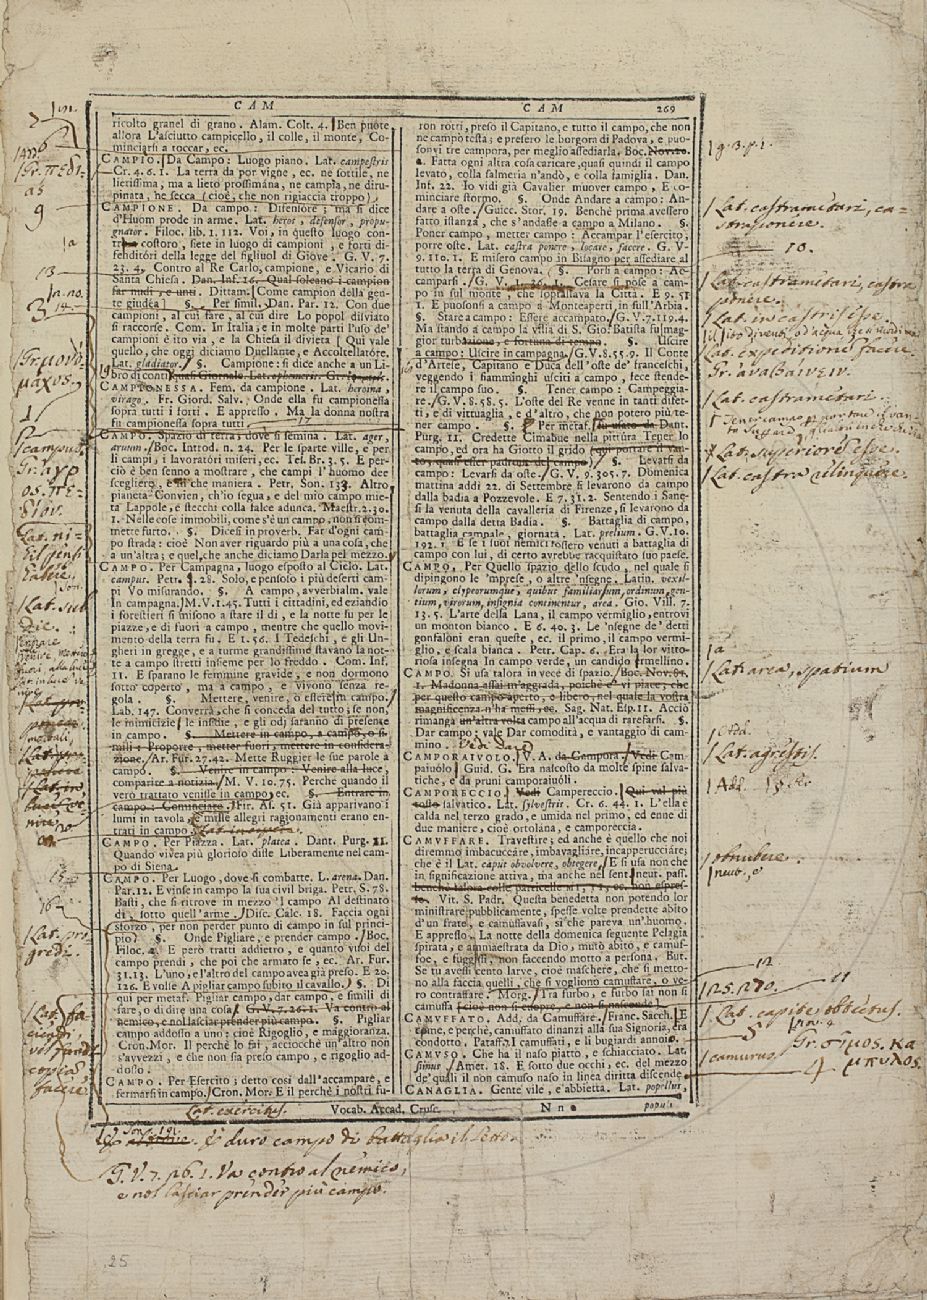 CAM
ricolto granel di grano. Alam. Colt. 4. Ben puote
allora L'asciutto campicello, il colle, il monte, Co-
minciarsi a toccar, ec.
CAMPIO. Da Campo: Luogo piano. Lat. campestris
Cr. 4. 6. 1. La terra da por vigne, ec. ne sottile, ne
lietissima, ma a lieto prossimana, ne campia, ne diru-
pinata, ne secca (cioè, che non rigiaccia troppo)
CAMPIONE. Da campo: Difensore; ma si dice
d'Huom prode in arme. Lat. heroi, defensor, propu-
gnator. Filoc. lib. 1. 112. Voi, in questo luogo con-
tra costoro, siete in luogo di campioni, e forti di-
fenditori della legge del figliuol di Giove. G. V. 7.
23. 4. Contro al Re Carlo, campione, e Vicario di
Santa Chiesa. Dan. Inf. 16. Qual soleano i campion
far nudi, e unti. Dittam. Come campion della gen-
te giudea. §. Per simil. Dan. Par. 12. Con due
campioni, al cui fare, al cui dire Lo popol disviato
si raccorse. Com. In Italia, e in molte parti l'uso de'
campioni è ito via, e la Chiesa il divieta. Qui vale
quello, che oggi diciamo Duellante, e Accoltellatore.
Lat. gladiator. §. Campione: si dice anche a un Li-
bro di conti, quasi Giornale. Lat. ephemeris.
CAMPIONESSA. Fem. da campione. Lat. heroina,
virago. Fr. Giord. Salv. Onde ella fu campionessa
sopra tutti i forti. E appresso. Ma la donna nostra
fu campionessa sopra tutti.
CAMPO. Spazio di terra, dove si semina. Lat. ager,
arvum. Boc. Introd. n. 24. Per le sparte ville, e per
li campi, i lavoratori miseri, ec. Tes. Br. 3. 5. E per-
ciò è ben senno a mostrare, che campi l'huomo dee
scegliere, e in che maniera. Petr. Son. 133. Altro
pianeta Convien, ch'io segua, e del mio campo mie-
ta Lappole, e stecchi colla falce adunca. Maestr. 2. 30.
1. Nelle cose immobili, come s'è un campo, non si com-
mette furto. §. Dicesi in proverb. Far d'ogni cam-
po strada: cioè Non aver riguardo più a una cosa, che
a un'altra; e quel, che anche diciamo Darla pel mezzo.
CAMPO. Per Campagna, luogo esposto al Cielo. Lat.
campus. Petr. S. 28. Solo, e pensoso i più deserti cam-
pi Vo misurando. §. A campo, avverbialm. vale
In campagna. M. V. 1. 45. Tutti i cittadini, ed eziandio
i forestieri si misono a stare il dì, e la notte su per le
piazze, e di fuori a campo, mentre che quello movi-
mento della terra fu. E 1. 56. I Tedeschi, e gli Un-
gheri in gregge, e a turme grandissime stavano la not-
te a campo stretti insieme per lo freddo. Com. Inf.
11. E sparano le femmine gravide, e non dormono
sotto coperto, ma a campo, e vivono senza re-
gola. §. Mettere, venire, o essere in campo.
Lab. 147. Converrà, che si conceda del tutto; se non,
le nimicizie, le insidie, e gli odj saranno di presente
in campo. §. Mettere in campo, a campo, o si-
mili: Proporre, metter fuori, mettere in considera-
zione. Ar. Fur. 27. 42. Mette Ruggier le sue parole a
campo. §. Venire in campo: Venire alla luce,
comparite a notizia. M. V. 10. 75. Perchè quando il
vero trattato venisse in campo, ec. §. Entrare in
campo: Cominciare. Fir. As. 51. Già apparivano i
lumi in tavola, e mille allegri ragionamenti erano en-
trati in campo.
CAMPO. Per Piazza. Lat. platea. Dant. Purg. 11.
Quando vivea più glorioso disse Liberamente nel cam-
po di Siena.
CAMPO. Per Luogo, dove si combatte. L. arena. Dan.
Par. 12. E vinse in campo la sua civil briga. Petr. S. 78.
Basti, che si ritrove in mezzo 'l campo Al destinato
dì, sotto quell'arme. Disc. Calc. 18. Faccia ogni
sforzo, per non perder punto di campo in sul princi-
pio. §. Onde Pigliare, e prender campo. Boc.
Filoc. 4. E però tratti addietro, e quanto vuoi del
campo prendi, che poi che armato se, ec. Ar. Fur.
31. 13. L'uno, e l'altro del campo avea già preso. E 20.
126. E volse A pigliar campo subito il cavallo. §. Di
qui per metaf. Pigliar campo, dar campo, e simili di
fare, o di dire una cosa. G. V. 7. 26. 1. Va contro al
nemico, e nol lasciar prender più campo. §. Pigliar
campo addosso a uno: cioè Rigoglio, e maggioranza.
Cron. Mor. Il perchè lo fai, acciocchè un'altro non
s'avvezzi, e che non sia preso campo, e rigoglio ad-
dosso.
CAMPO. Per Esercito; detto così dall'accampare, e
fermarsi in campo. Cron. Mor. E il perchè i nostri fu-
CAM
269
ron rotti, preso il Capitano, e tutto il campo, che non
ne campò testa; e presero le borgora di Padova, e puo-
sonvi tre campora, per meglio assediarla. Boc. Nov. 20.
a. Fatta ogni altra cosa caricare, quasi quindi il campo
levato, colla salmeria n'andò, e colla famiglia. Dan.
Inf. 22. Io vidi già Cavalier muover campo, E co-
minciare stormo. §. Onde Andare a campo: An-
dare a oste. Guicc. Stor. 19. Benchè prima avessero
fatto istanza, che s'andasse a campo a Milano. §.
Poner campo, metter campo: Accampar l'esercito;
porre oste. Lat. castra ponere, locare, facere. G. V.
9. 110. 1. E misero campo in Bisagno per assediare al
tutto la terra di Genova. §. Porsi a campo: Ac-
camparsi. G. V. 36. 1. Cesare si pose a cam-
po in sul monte, che soprastava la Città. E 9. 51
1. E puosonsi a campo a Montcaperti in sull'Arbia
§. Stare a campo: Essere accampato. G. V. 7. 119. 4.
Ma stando a campo in la villa di S. Gio. Batista fu mag-
gior turbazione, e fortuna di tempo. §. Uscire
a campo: Uscire in campagna. G. V. 8. 55. 9. Il Conte
d'Artese, Capitano e Duca dell'oste de' franceschi,
veggendo i fiamminghi usciti a campo, fece stende-
re il campo suo. §. Tener campo: Campeggia-
re. G. V. 8. 58. 5. L'oste del Re venne in tanti difet-
ti, e di vittuaglia, e d'altro, che non potero più te-
ner campo. §. Per metaf. fu usato da Dant.
Purg. 11. Credette Cimabue nella pittura Tener lo
campo, ed ora ha Giotto il grido (qui portare il van-
to, quasi esser padrona del campo.) §. Levarsi da
campo: Levarsi da oste. G. V. 9. 305. 7. Domenica
mattina addì 22. di Settembre si levarono da campo
dalla badia a Pozzevole. E 7. 31. 2. Sentendo i Sane-
si la venuta della cavalleria di Firenze, si levarono da
campo dalla detta Badia. §. Battaglia di campo,
battaglia campale, giornata. Lat. prelium. G. V. 10.
192. 1. E se i suoi nemici fossero venuti a battaglia di
campo con lui, di certo avrebbe racquistato suo paese.
CAMPO. Per Quello spazio dello scudo, nel quale si
dipingono le 'mprese, o altre 'nsegne. Latin. vexil-
lorum, clypeorumque, quibus familiarum, ordinum, gen-
tium, virorum, insignia continentur, area. Gio. Vill. 7.
13. 5. L'arte della Lana, il campo vermiglio, entrovi
un monton bianco. E 6. 40. 3. Le 'nsegne de' detti
gonfaloni eran queste, ec. il primo, il campo vermi-
glio, e scala bianca. Petr. Cap. 6. Era la lor vitto-
riosa insegna In campo verde, un candido ermellino.
CAMPO. Si usa talora in vece di spazio. Boc. Nov. 91.
1. Madonna assai m'aggrada, poichè e' vi piace; che
per questo campo aperto, o libero, nel quale la vostra
magnificenza n'ha messi, ec. Sag. Nat. Esp. 11. Acciò
rimanga un'altra volta campo all'acqua di rarefarsi. §.
Dar campo; vale Dar comodità, e vantaggio di cam-
mino. Vedi Dare
CAMPORAIVOLO. V. A. da Campora. Vedi Cam-
paiuolo. Guid. G. Era nascosto da molte spine salva-
tiche, e da pruni camporaiuoli.
CAMPORECCIO. Vedi Campereccio. Qui val più
tosto salvatico. Lat. sylvestris. Cr. 6. 44. 1. L'ell'a è
calda nel terzo grado, e umida nel primo, ed enne di
due maniere, cioè ortolana, e camporeccia.
CAMVFFARE. Travestire; ed anche è quello che noi
diremmo imbacuccare, imbavagliare, incapperucciare;
che è il Lat. caput obvolvere, obtegere. E si usa non che
in significazione attiva, ma anche nel sent. neut. pass.
benchè talora colle particelle mi, ti, ec. non espres-
se. Vit. S. Padr. Questa benedetta non potendo lor
ministrare pubblicamente, spesse volte prendete abito
d'un frate, e camuffavasi, sì che pareva un'huomo.
E appresso. La notte della domenica seguente Pelagia
spirata, e ammaestrata da Dio, mutò abito, e camuf-
foe, e fuggissi, non faccendo motto a persona. But.
Se tu avessi cento larve, cioè maschere, che si metto-
no alla faccia quelli, che si vogliono camuffare, o ve-
ro contraffare. Morg. Tra furbo, e furbo sai non si
camuffa (cioè non si cuopre, e non si nasconde)
CAMVFFATO. Add. da Camuffare. Franc. Sacch. E
come, e perchè, camuffato dinanzi alla sua Signoria, era
condotto. Pataff. I camuffati, e li bugiardi annoia.
CAMVSO. Che ha il naso piatto, e schiacciato. Lat.
simus. Amet. 18. E sotto due occhi, ec. del mezzo
de' quali il non camuso naso in linea diritta discende
CANAGLIA. Gente vile, e abbietta. Lat. popellus,
Vocab. Accad. Crusc.
N n
popu-
Lat. exercitus.
duro campo di battaglia il letto
G. V. 7. 26. 1. Va contro al nemico,
e nol lasciar prender più campo.
25
Lat. castrametari, ca-
10.
Lat. castrametari, castra
ponere.
Lat. in castris esse.
Lat. castrametari.
Lat. superiore esse.
Lat. castra relinquere.
Lat. area, spatium
Lat. agrestis.
Add.
obnubere
12
11
Lat. capite obvolutus.
camurus.